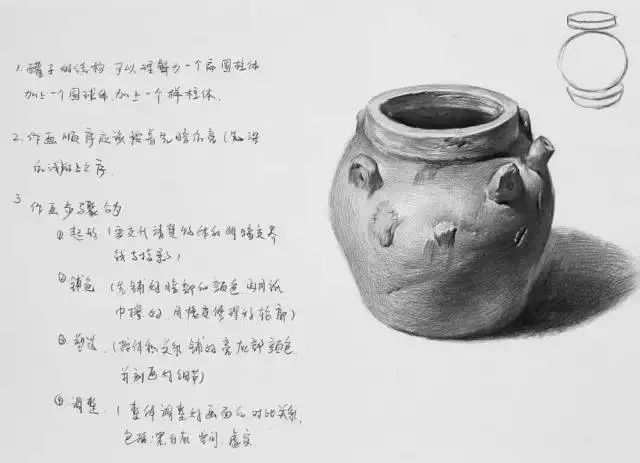 1. 罐子的结构,可以理解为一个扁圆柱体
加上一个圆球体,加上一个 柱体.
2. 作画顺序应该按着先暗后亮(先深
后浅)的上之序.
3. 作画步骤分为
① 起形(要交代清楚物体和明暗交界
线与投影)
② 铺色.(先铺好暗部的颜色再用纸
巾擦匀,用橡皮修理好轮廓)
③ 塑造.(按体积关系铺好亮灰部颜色,
并刻画好细节)
④ 调整.(整体调整好画面的对比关系,
包括:黑白灰 空间.虚实